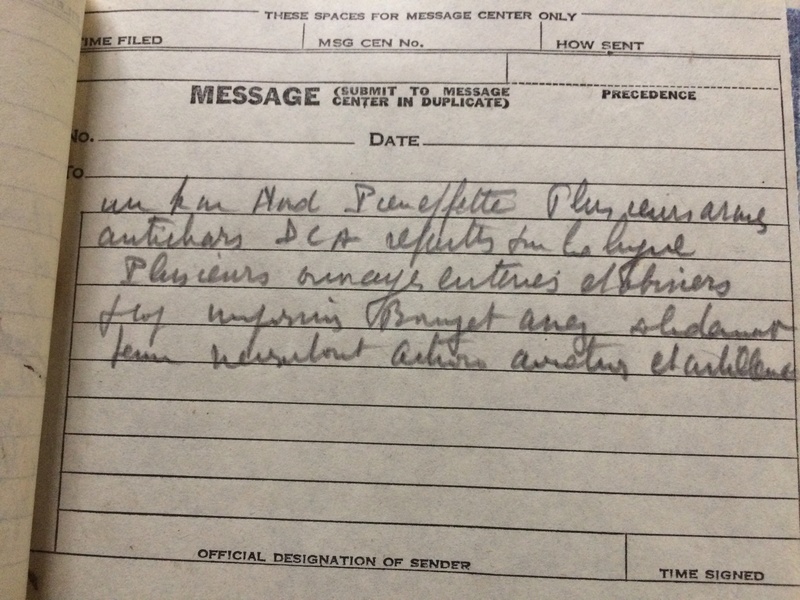 THESE SPACES FOR MESSAGE CENTER ONLY
TIME FILED MSG CEN No. HOW SENT
MESSAGE (SUBMIT TO MESSAGE CENTER IN DUPLICATE) PRECEDENCE
No. DATE
To
un km Nord Pierrefitte Plusieurs armes
antichars DCA repartis sur la ligne
Plusieurs ouvrages enterrés et abris
Bourget assez solidement
tenu action aviation et artillerie
OFFICIAL DESIGNATION OF SENDER
TIME SIGNED